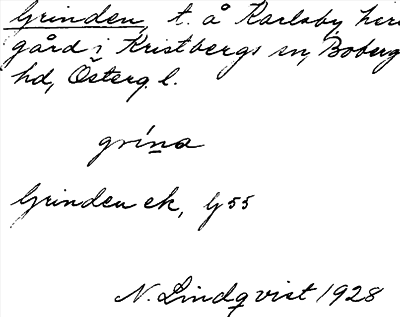 Grinden, t. å Karlsby, herr
gård i Kristbergs sn, Boberg
hd, Österg. l.
grína
Grinden ek, G 55
N. Lindqvist 1928